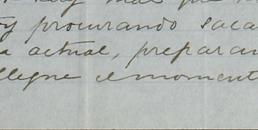 hay mas que
procurando saca
actual, preparan
llegue el moment